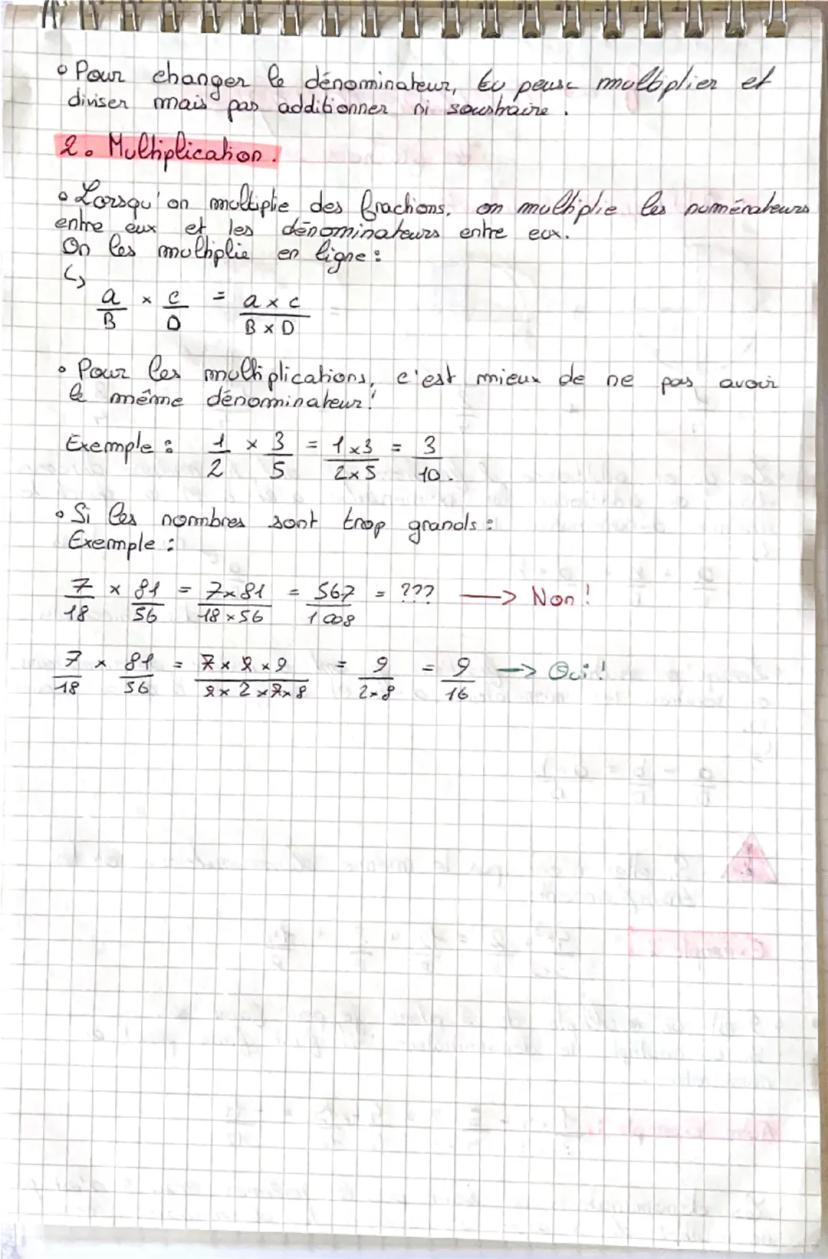 • Pour changer le dénominateur, tu peusc multiplier et
diviser mais pas additionner ni soustraire.
2. Multiplication.
• Lorsqu'on multiplie des fractions, on multiplie les numérateurs
entre eux et les dénominateurs entre eux.
On les multiplie en ligne :
↳
a/B × c/D = a × c / B × D
• Pour les multiplications, c'est mieux de ne pas avoir
le même dénominateur !
Exemple : 1/2 × 3/5 = 1×3 / 2×5 = 3/10.
• Si les nombres sont trop grands :
Exemple :
7/18 × 81/56 = 7×81 / 18×56 = 567/1008 = ??? → Non !
7/18 × 81/56 = 7 × 9 × 9 / 9 × 2 × 7 × 8 = 9 / 2×8 = 9/16 → Oui !